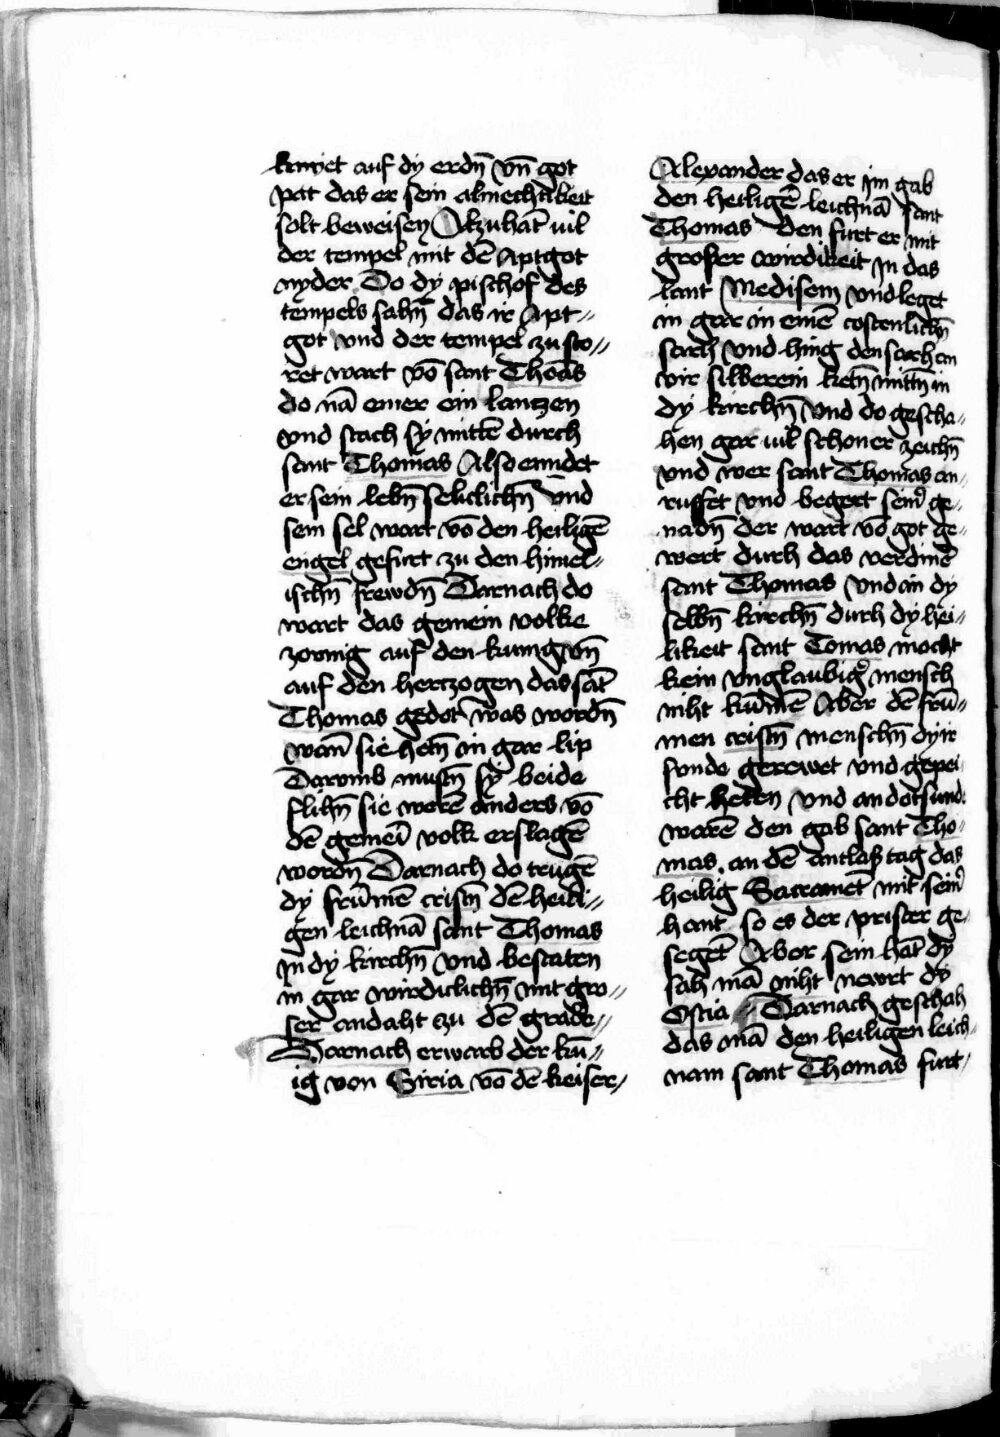 kniet auf dy erdn̄ vn̄ got
pat das er sein almechtikeit
solt beweisen Alzuhāt uil
der tempel mit dē Aptgot
nyder Do dy pischof des
tempels sahn̄ das ir Apt⸗
got vnd der tempel zu sto⸗
ret wart vō sant Thōas
do nā einer ein lantzen
vnd stach sy mittē durch
sant Thomas Also enndet
er sein lebn̄ seliclichn̄ vnd
sein sel wart vō den heiligē
engel gefurt zu den himel⸗
ischn̄ frewdn̄ Darnach do
wart das gemein volke
zornig auf den kunig vn̄
auf den hertzogen das sāt
Thomas gedot was wordn̄
wan̄ sie hetn̄ in gar lip
Darvmb mustn̄ sy beide
flihn̄ sie werē anders vō
dē gemeī volk erslagē
wordn̄ Darnach do trugē
dy frūmē cristn̄ dē heili⸗
gen leichnā sant Thomas
jn dy kirchn̄ vnd bestaten
in gar wirdiclichn̄ mit gro⸗
ser andaht zu dē grabe⸗
Darnach erwarb der kū⸗
ig von Siria vō dē keiser⸗
Alexander das er jm gab
den heiligē leichnā sant
Thomas den furt er mit
großer wirdikeit jn das
lant Medisem vnd leget
in gar in einē costenlichn̄
sarch vnd hing den sarch an
vir silberein ketn̄ mittn̄ in
dy kirchn̄ vnd do gescha⸗
hen gar uil schoner zeichn̄
vnd wer sant Thomas an⸗
ruffet vnd begert seiner ge⸗
nadn̄ der wart vō got ge⸗
wert durch das verdinē
sant Thomas vnd in dy
selbn̄ kirchn̄ durch dy hei⸗
likeit sant Tomas mocht
kein vnglaubiger mensch
niht kūmē Aber dē frū⸗
men cristn̄ menschn̄ dy ir
sunde gerewet vnd gepei
cht heten vnd an dotsund⸗
warē den gab sant Tho⸗
mas an dē antlaß tag das
heilig Sacramēt mit seiner
hant so es der prister ge⸗
segēt Aber sein hāt dy
sah mā niht newrt dy
Ostia Darnach geschah
das mā den heiligen leich⸗
nam sant Thomas furt⸗